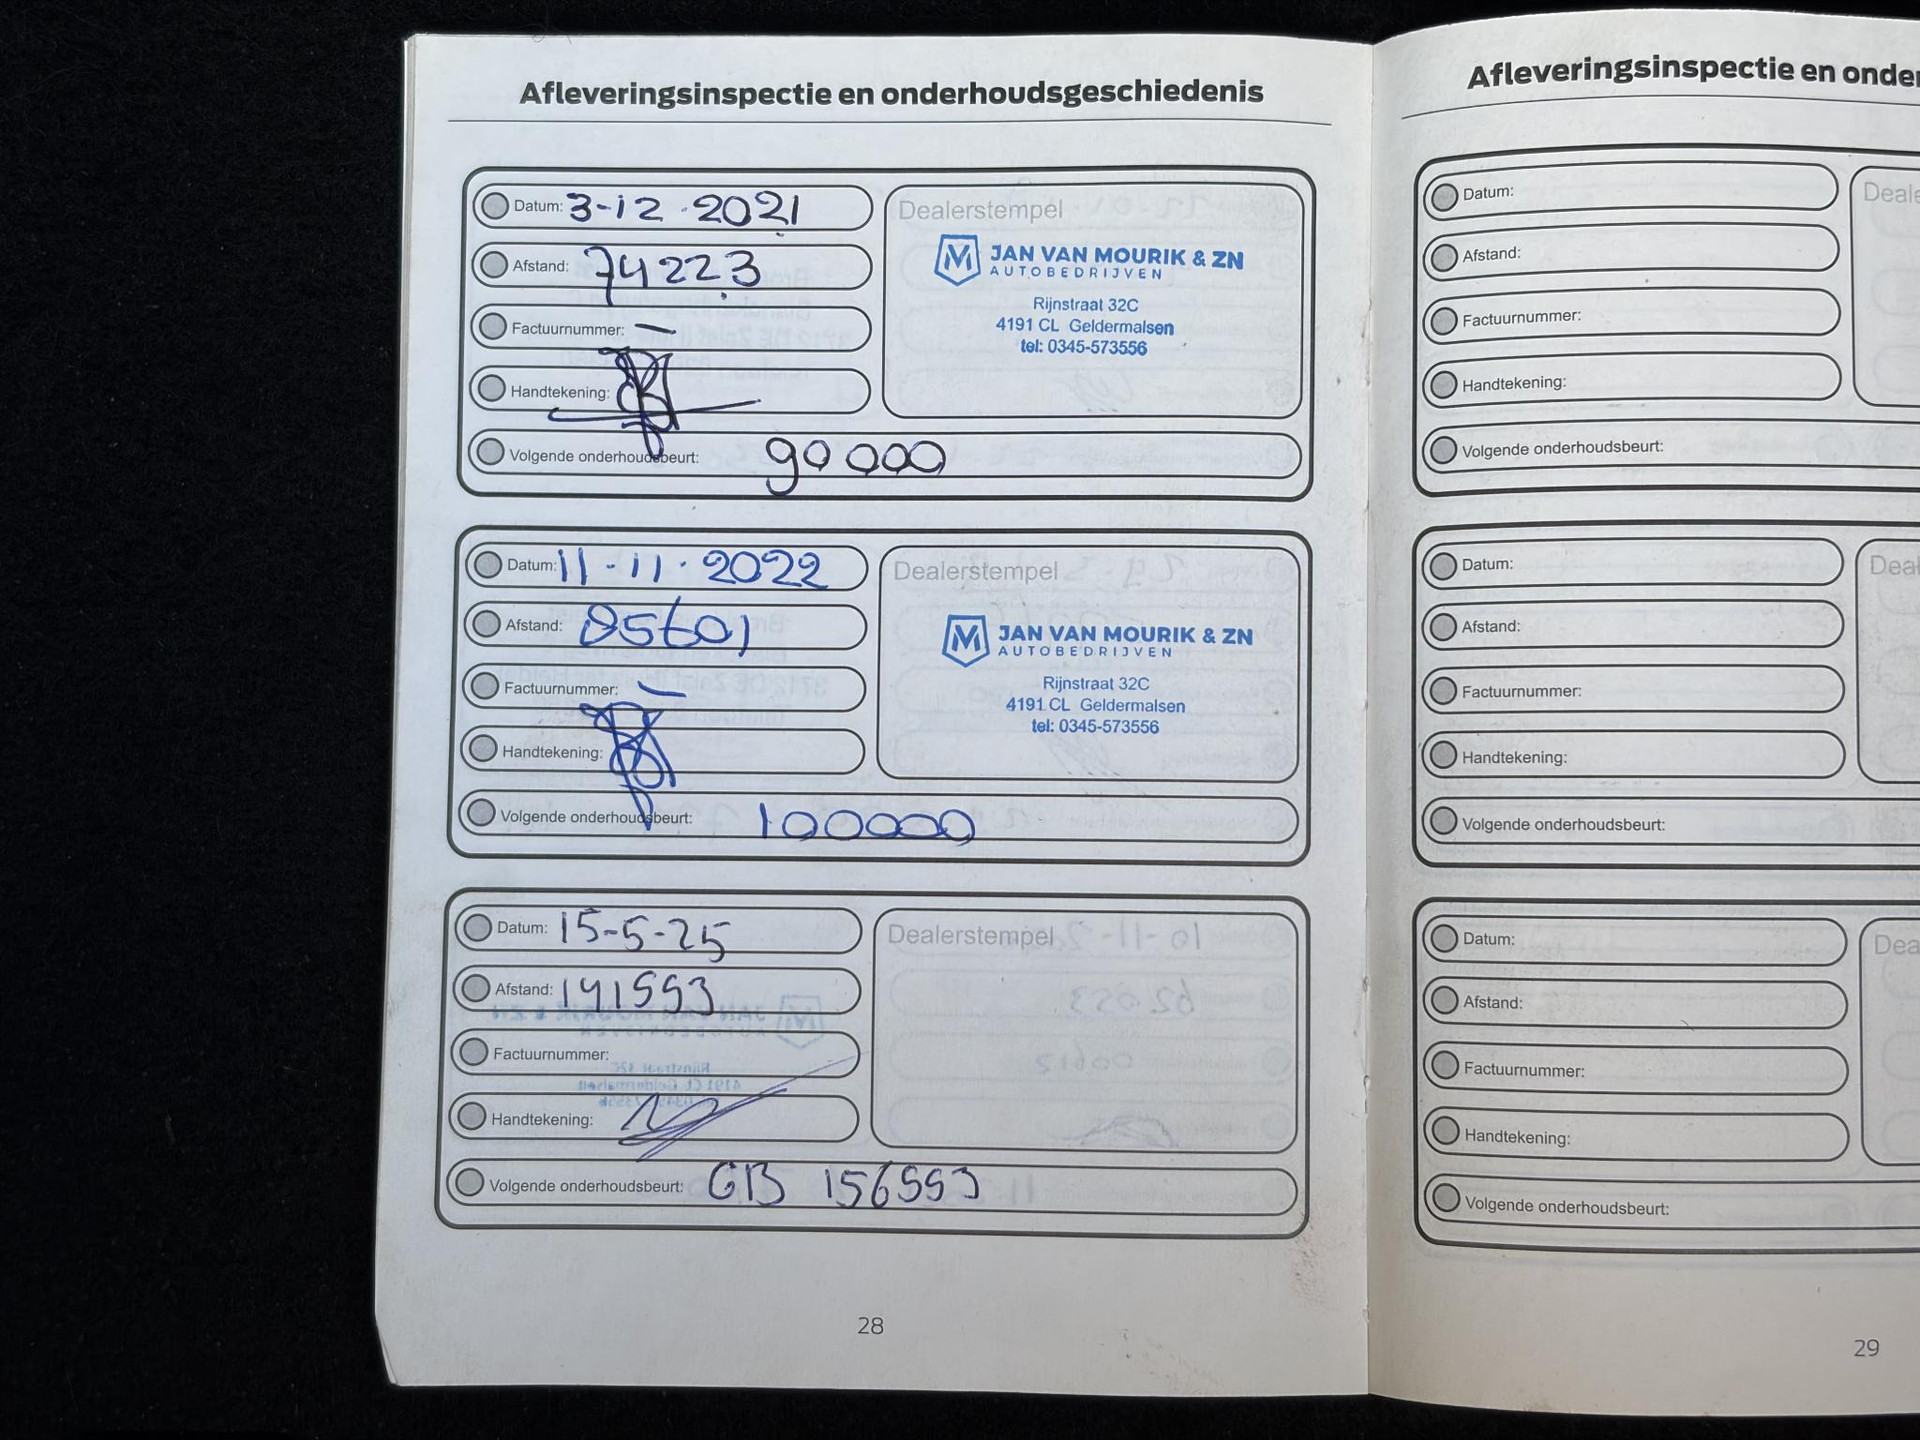 Afleveringsinspectie en onderhoudsgeschiedenis
Datum: 3-12-2021
Afstand: 74223
Factuurnummer: —
Handtekening:
Volgende onderhoudsbeurt: 90 000
Dealerstempel
JAN VAN MOURIK & ZN
AUTOBEDRIJVEN
Rijnstraat 32C
4191 CL Geldermalsen
tel: 0345-573556
Datum: 11-11-2022
Afstand: 85601
Factuurnummer: —
Handtekening:
Volgende onderhoudsbeurt: 100000
Dealerstempel
JAN VAN MOURIK & ZN
AUTOBEDRIJVEN
Rijnstraat 32C
4191 CL Geldermalsen
tel: 0345-573556
Datum: 15-5-25
Afstand: 141553
Factuurnummer:
Handtekening:
Volgende onderhoudsbeurt: GB 156553
Dealerstempel
28
Afleveringsinspectie en onder
Datum:
Afstand:
Factuurnummer:
Handtekening:
Volgende onderhoudsbeurt:
Deale
Datum:
Afstand:
Factuurnummer:
Handtekening:
Volgende onderhoudsbeurt:
Deal
Datum:
Afstand:
Factuurnummer:
Handtekening:
Volgende onderhoudsbeurt:
Dea
29